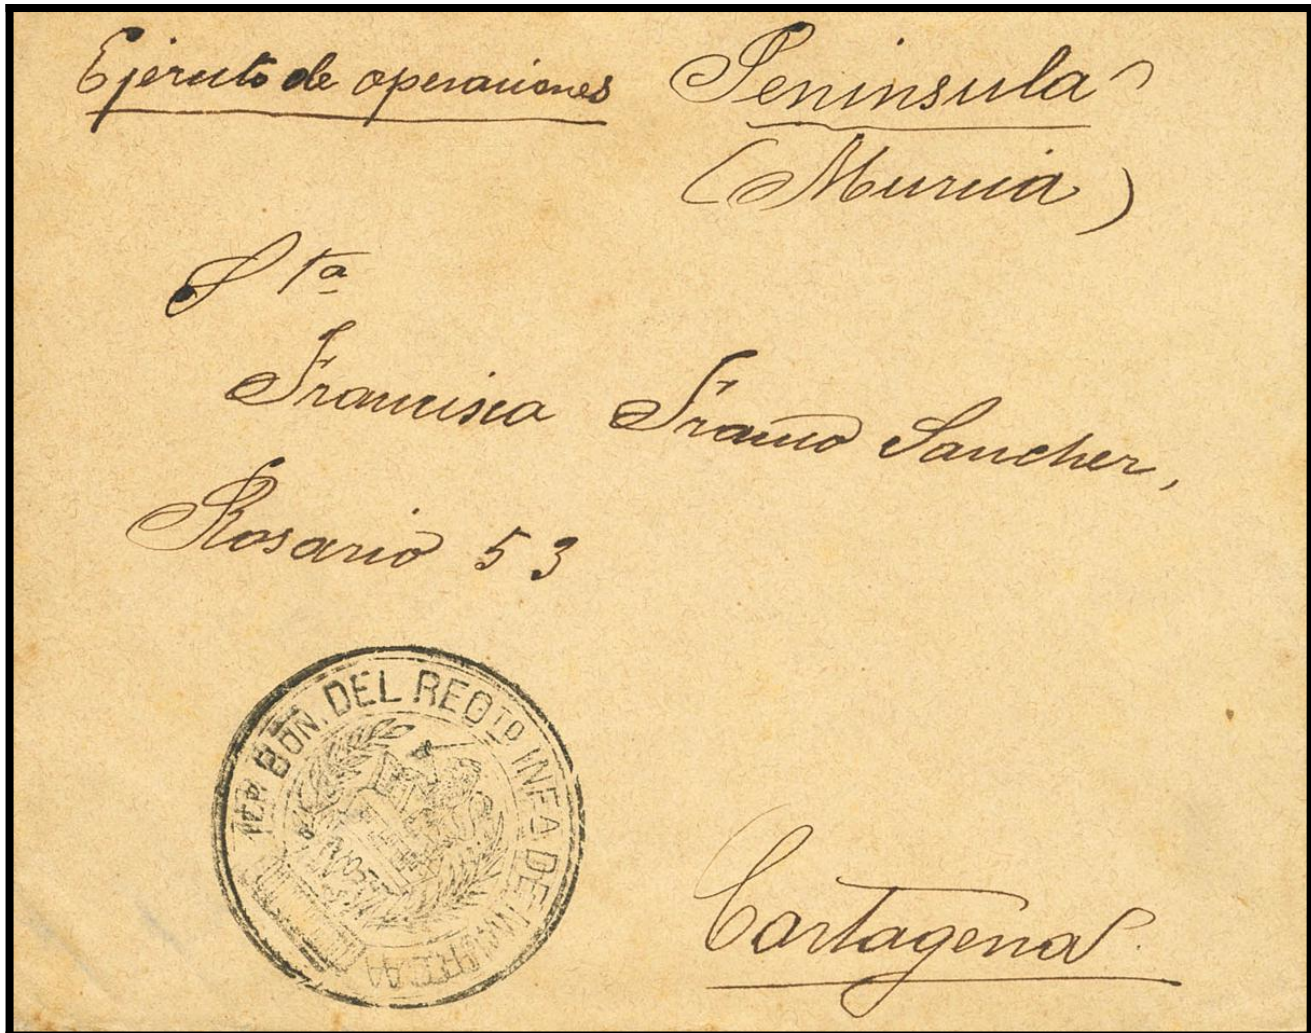 Ejercito de operaciones
Peninsula
(Murcia)
Sta
Francisca Franco Sanchez,
Rosario 53
1ER BÓN. DEL REGTO INFA DE
Cartagena